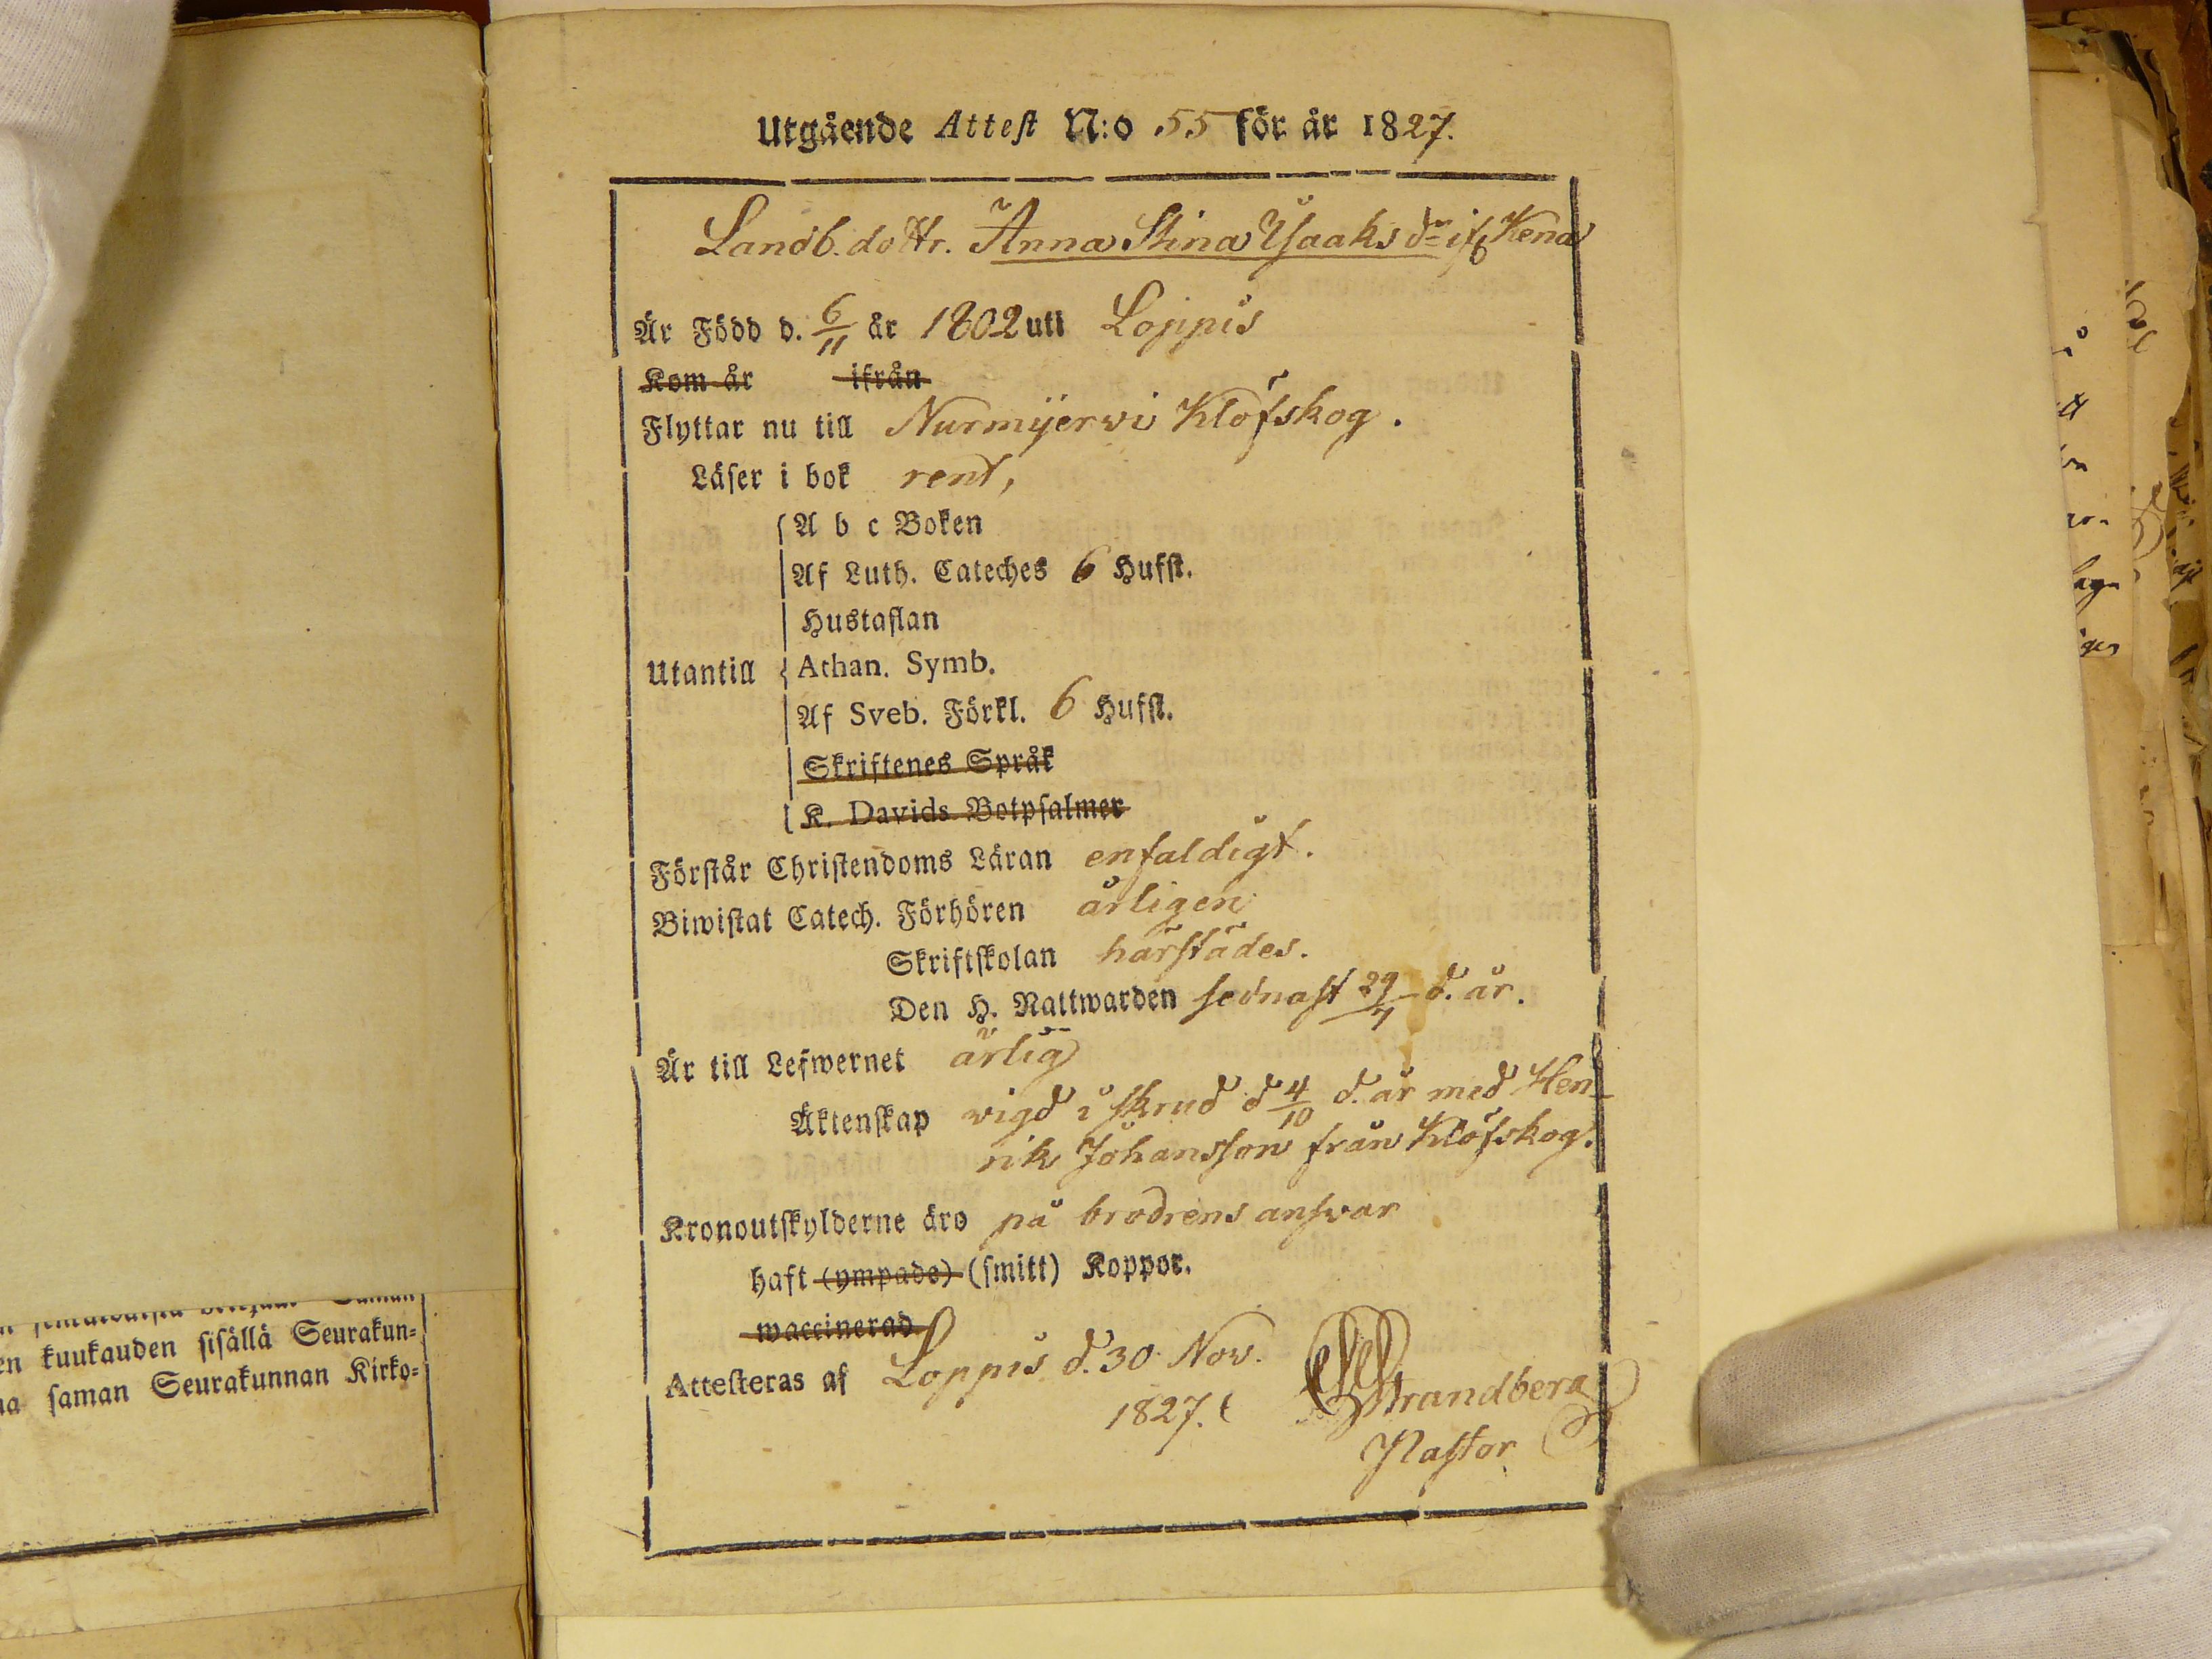 Utgående Attest N:o 55 för år 1827.
Landb. dottr. Anna Stina Isaks dr if. Kena
Är Född d. 6/11 år 1802 uti Loppis
Kom år ifrån
Flyttar nu till Nurmijerwi Klöfskog.
Läser i bok rent,
A b c Boken
Af Luth. Cateches 6 Hufst.
Hustaflan
Utantill Athan. Symb.
Af Sveb. Förkl. 6 Hufst.
Skriftenes Språk
K. Davids Botpsalmer
Förstår Christendoms Läran enfaldigt.
Biwistat Catech. Förhören årligen
Skriftskolan härstädes.
Den H. Nattwarden sednast 29/7 d. år.
Är till Lefwernet ärlig
Äktenskap wigd i skrud d 4/10 d. år med Hen-
rik Johansson från Klöfskog.
Kronoutskylderne äro på brodrens answar
haft (ympade) (smitt) Koppor.
waccinerad
Attesteras af Loppis d. 30 Nov.
1827. Strandberg
Pastor
en kuukauden sisällä Seurakun-
na saman Seurakunnan Kirko-